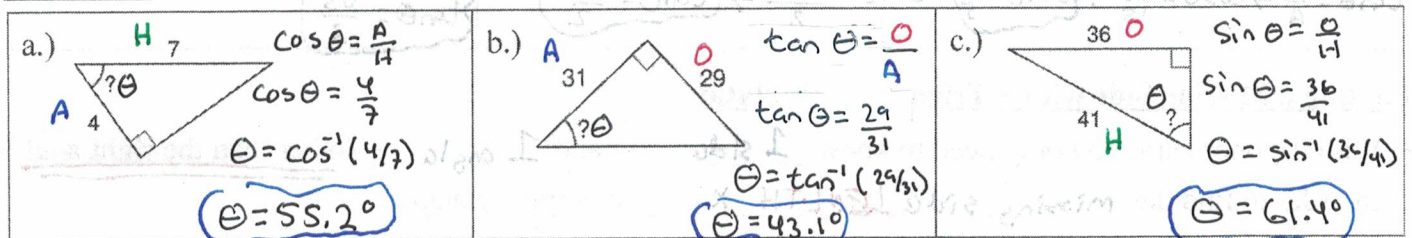 a.)
H
7
A
4
?θ
cosθ = A/H
cosθ = 4/7
θ = cos⁻¹(4/7)
θ = 55.2°
b.)
A
31
O
29
?θ
tan θ = O/A
tan θ = 29/31
θ = tan⁻¹(29/31)
θ = 43.1°
c.)
36 O
41
H
θ
?
Sin θ = O/H
Sin θ = 36/41
θ = sin⁻¹(36/41)
θ = 61.4°